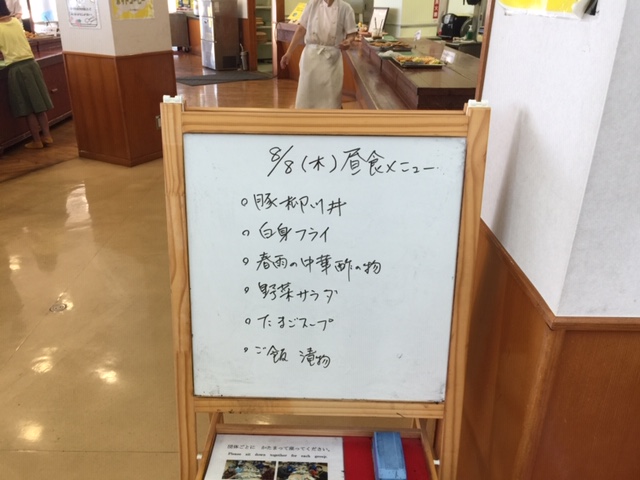 8/8(木)昼食メニュー
○豚柳川丼
○白身フライ
○春雨の中華酢の物
○野菜サラダ
○たまごスープ
○ご飯 漬物
団体ごとに かたまって座ってください。
Please sit down together for each group.